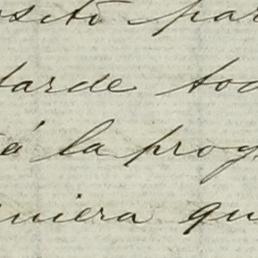 osito par
tarde tod
é la proy
iniera qu